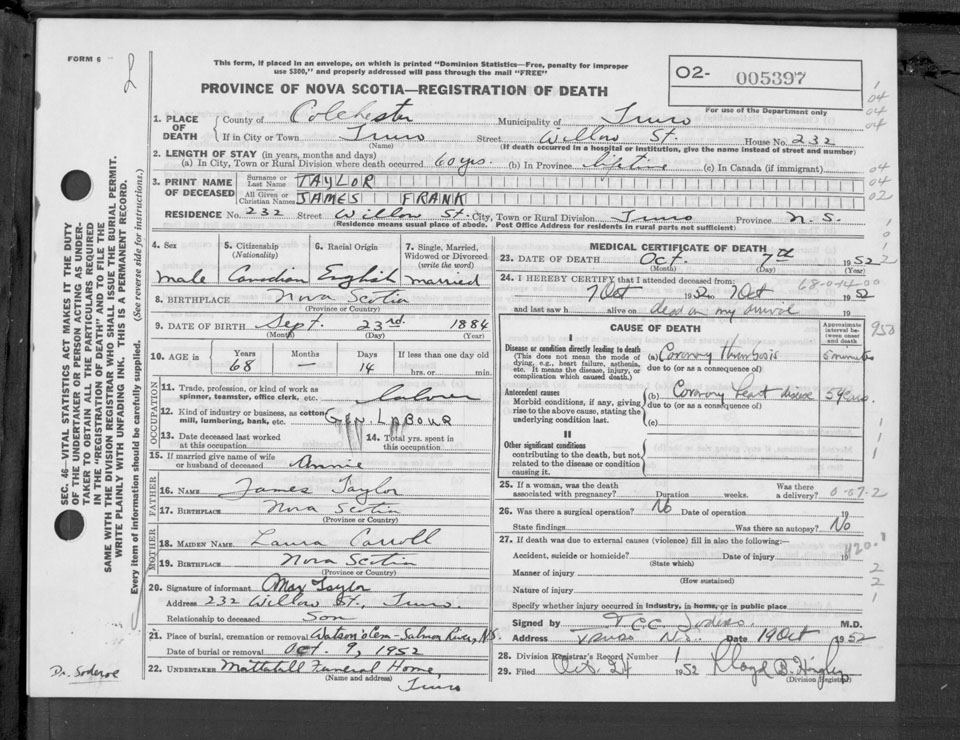 FORM 6
This form, if placed in an envelope, on which is printed "Dominion Statistics—Free, penalty for improper
use $300," and properly addressed will pass through the mail "FREE"
02- 005397
PROVINCE OF NOVA SCOTIA—REGISTRATION OF DEATH
For use of the Department only
1. PLACE OF DEATH County of Colchester Municipality of Truro
If in City or Town Truro Street Willow St. House No. 232
(Name) (If death occurred in a hospital or institution, give the name instead of street and number)
2. LENGTH OF STAY (in years, months and days)
(a) In City, Town or Rural Division where death occurred 60 yrs. (b) In Province lifetime (c) In Canada (if immigrant)
3. PRINT NAME OF DECEASED Surname or Last Name TAYLOR
All Given or Christian Names JAMES FRANK
RESIDENCE No. 232 Street Willow St. City, Town or Rural Division Truro Province N.S.
(Residence means usual place of abode. Post Office Address for residents in rural parts not sufficient)
4. Sex male
5. Citizenship (Nationality) Canadian
6. Racial Origin English
7. Single, Married, Widowed or Divorced (write the word) married
8. BIRTHPLACE Nova Scotia
(Province or Country)
9. DATE OF BIRTH Sept. 23rd 1884
(Month) (Day) (Year)
10. AGE in Years 68 Months — Days 14 If less than one day old
hrs. or min.
OCCUPATION
11. Trade, profession, or kind of work as
spinner, teamster, office clerk, etc. labourer
12. Kind of industry or business, as cotton
mill, lumbering, bank, etc. GEN. LABOUR
13. Date deceased last worked
at this occupation
14. Total yrs. spent in
this occupation
15. If married give name of wife
or husband of deceased Annie
FATHER
16. NAME James Taylor
17. BIRTHPLACE Nova Scotia
(Province or Country)
MOTHER
18. MAIDEN NAME Laura Carroll
19. BIRTHPLACE Nova Scotia
(Province or Country)
20. Signature of informant Max Taylor
Address 232 Willow St., Truro.
Relationship to deceased Son
21. Place of burial, cremation or removal Watson's Cem - Salmon River, N.S.
Date of burial or removal Oct. 9, 1952
22. UNDERTAKER Mattatall Funeral Home
(Name and address) Truro
MEDICAL CERTIFICATE OF DEATH
23. DATE OF DEATH Oct. 7th 1952
(Month) (Day) (Year)
24. I HEREBY CERTIFY that I attended deceased from:
7 Oct 1952 to 7 Oct 1952
68-0-14-00
and last saw h alive on dead on my arrival 19
CAUSE OF DEATH
Approximate interval between onset and death
I
Disease or condition directly leading to death
(This does not mean the mode of
dying, e.g., heart failure, asthenia,
etc. It means the disease, injury, or
complication which caused death.)
(a) Coronary thrombosis 5 minutes
due to (or as a consequence of)
Antecedent causes
Morbid conditions, if any, giving
rise to the above cause, stating the
underlying condition last.
(b) Coronary heart disease 5 years.
due to (or as a consequence of)
(c)
II
Other significant conditions
contributing to the death, but not
related to the disease or condition
causing it.
25. If a woman, was the death
associated with pregnancy? Duration weeks. Was there a delivery? 0-07-2
26. Was there a surgical operation? No Date of operation 19
State findings Was there an autopsy? No
27. If death was due to external causes (violence) fill in also the following:—
Accident, suicide or homicide? Date of injury 19
(State which)
Manner of injury
(How sustained)
Nature of injury
Specify whether injury occurred in industry, in home, or in public place
Signed by M.D.
Address Truro N.S. Date 19 Oct 1952
28. Division Registrar's Record Number 1
29. Filed Oct. 24 1952
(Division Registrar)
SEC. 46—VITAL STATISTICS ACT MAKES IT THE DUTY
OF THE UNDERTAKER OR PERSON ACTING AS UNDER-
TAKER TO OBTAIN ALL THE PARTICULARS REQUIRED
IN THE "REGISTRATION OF DEATH" AND TO FILE THE
SAME WITH THE DIVISION REGISTRAR WHO SHALL ISSUE THE BURIAL PERMIT.
WRITE PLAINLY WITH UNFADING INK. THIS IS A PERMANENT RECORD.
Every item of information should be carefully supplied. (See reverse side for instructions.)